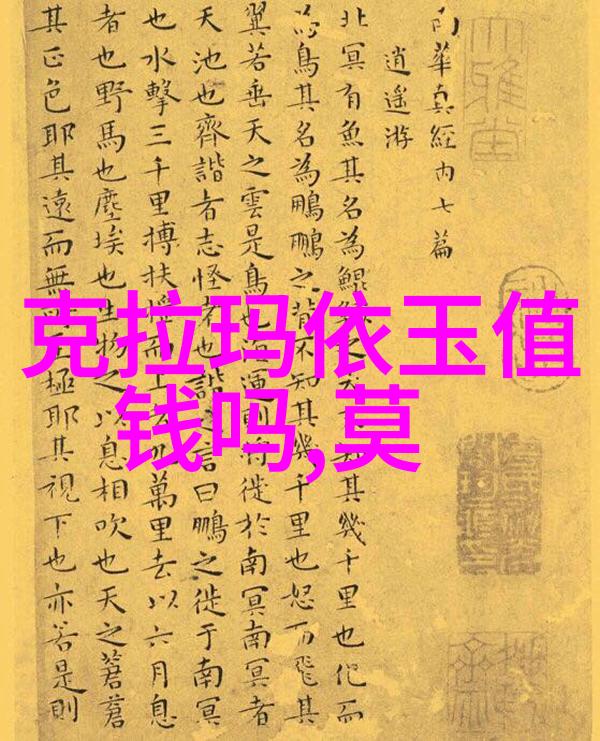 克拉玛依玉值
钱吗,莫
南華真經內七篇
逍遙游
北冥有魚其名為鯤之其幾千里也化而
為鳥其名為鵬鵬之背不知其幾千里也怒而飛其
翼若垂天之雲是鳥也運則將徙於南冥南冥者
天池也齊諧者志怪者也諧之言曰鵬之徙于南冥
也水擊三千里搏扶搖而上萬里去以六月息
者也野馬也塵埃也生物之以息相吹也天之蒼蒼
其正色耶其遠而無極耶其視下也亦若是則